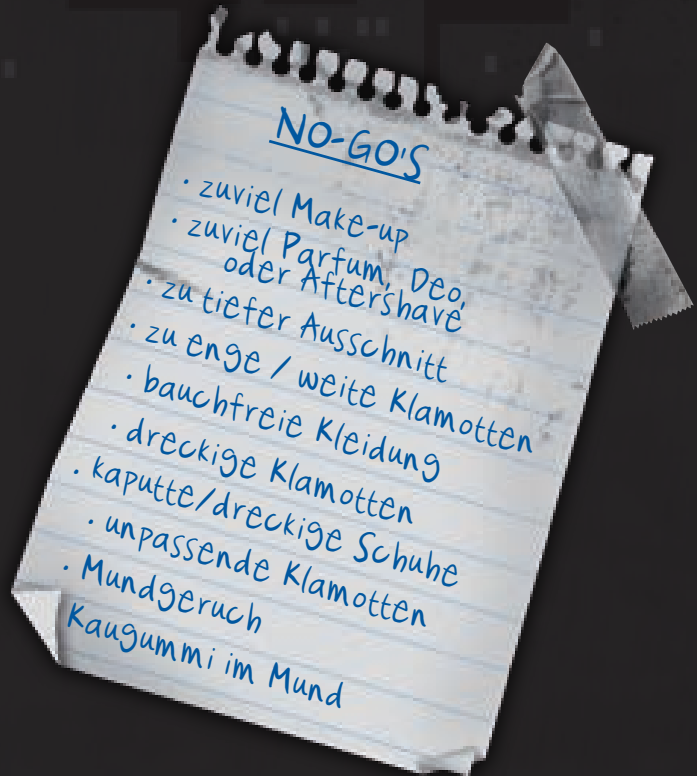 NO-GO'S
· zuviel Make-up
· zuviel Parfum, Deo,
oder Aftershave
· zu tiefer Ausschnitt
· zu enge / weite Klamotten
· bauchfreie Kleidung
· dreckige Klamotten
· kaputte/dreckige Schuhe
· unpassende Klamotten
· Mundgeruch
Kaugummi im Mund